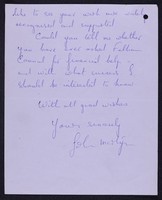 like to see your work more widely
recognised and supported.
Could you tell me whether
you have ever asked
Council for financial help
and with what success? I
should be interested to know.
With all good wishes
Yours sincerely
John